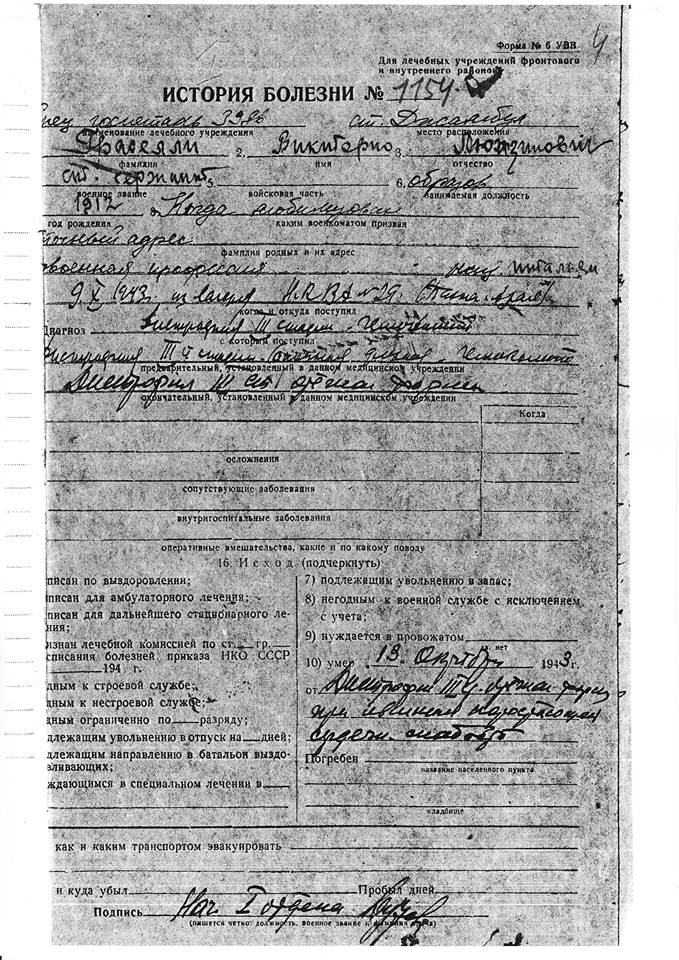 4
Форма № 6 УВВ
Для лечебных учреждений фронтового
и внутреннего районов
ИСТОРИЯ БОЛЕЗНИ № 1154
госпиталь 3986 ст.
наименование лечебного учреждения место расположения
2. Викиторио 3.
фамилия имя отчество
ст. сержант 5. 6.
военное звание войсковая часть занимаемая должность
1912 Когда мобилизован
год рождения каким военкоматом призван
адрес
фамилия родных и их адрес
военная профессия нац. итальян
9 XI 1943 из лагеря № 29.
когда и откуда поступил
Диагноз Дистрофия III стадии.
с которым поступил
Дистрофия III й стадии.
предварительный, установленный в данном медицинском учреждении
Дистрофия III ст. отечная форма
окончательный, установленный в данном медицинском учреждении
Когда
осложнения
сопутствующие заболевания
внутригоспитальные заболевания
оперативные вмешательства, какие и по какому поводу
16. Исход (подчеркнуть)
писан по выздоровлении;
писан для амбулаторного лечения;
писан для дальнейшего стационарного ле-
ния;
изнан лечебной комиссией по ст. гр.
списания болезней приказа НКО СССР
194 г.
дным к строевой службе;
дным к нестроевой службе;
дным ограничено по разряду;
длежащим увольнению в отпуск на дней;
длежащим направлению в батальон выздо-
вливающих;
ждающимся в специальном лечении в
7) подлежащим увольнению в запас;
8) негодным к военной службе с исключением
с учета;
9) нуждается в провожатом
нет
10) умер 13. Октября 1943 г.
от Дистрофии III ст. отечная форма
при явлениях нарастающей
сердечн. слабости
Погребен
название населенного пункта
кладбище
как и каким транспортом эвакуировать
и куда убыл Пробыл дней
Подпись Нач I отдел
(пишется четко: должность, военное звание и фамилия врача)